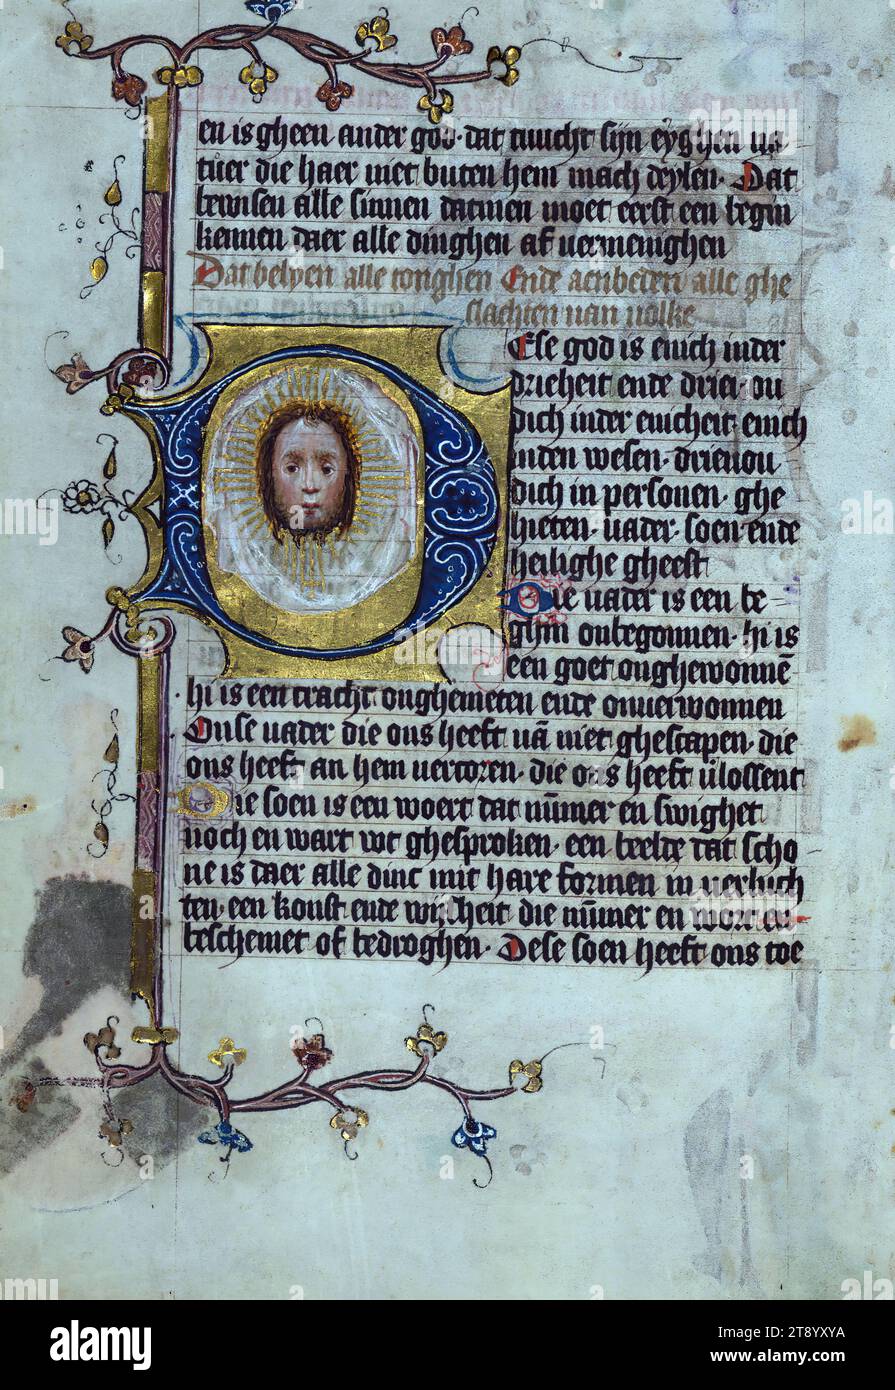 en is gheen ander god· dat tuucht sijn eyghen na
tuer die haer niet buten hem mach deylen· Dat
bewisen alle sinnen datmen moet eerst een begin
kennen daer alle dinghen af uermenighen
Dat belyen alle tonghen Ende aenbeden alle ghe
slachten uan uolke
Ese god is enich inder
drieheit ende driev ou
dich inder enicheit enich
inden wesen· drieuou
dich in personen· ghe
hieten· uader· soen ende
heilighe gheest
Die uader is een be
ghin onbegonnen· hi is
een goet onghewonnē
hi is een cracht onghemeten ende onuerwonnen
Onse uader die ons heeft uā niet ghescapen· die
ons heeft an hem uercoren· die ons heeft ülossent
Die soen is een woert dat nūmer en swighet
noch en wart wt ghesproken· een beelde dat scho
ne is daer alle dinc mit hare formen in uerluch
ten· een konst ende wijsheit die nūmer en wort en
beschemet of bedroghen· Dese soen heeft ons toe
alamy
Image ID: 2T8YXYA
www.alamy.com